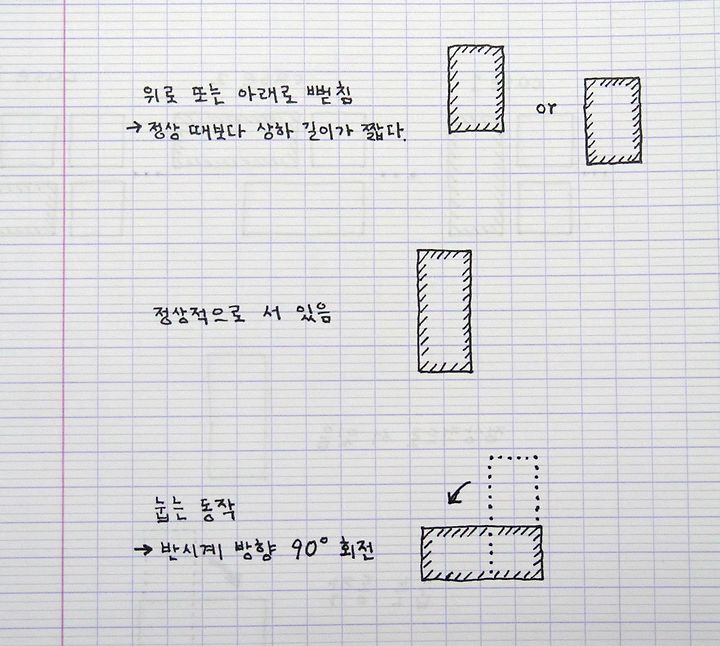 위로 또는 아래로 뻗침
→ 정상 때보다 상하 길이가 짧다.
or
정상적으로 서 있음
눕는 동작
→ 반시계 방향 90° 회전